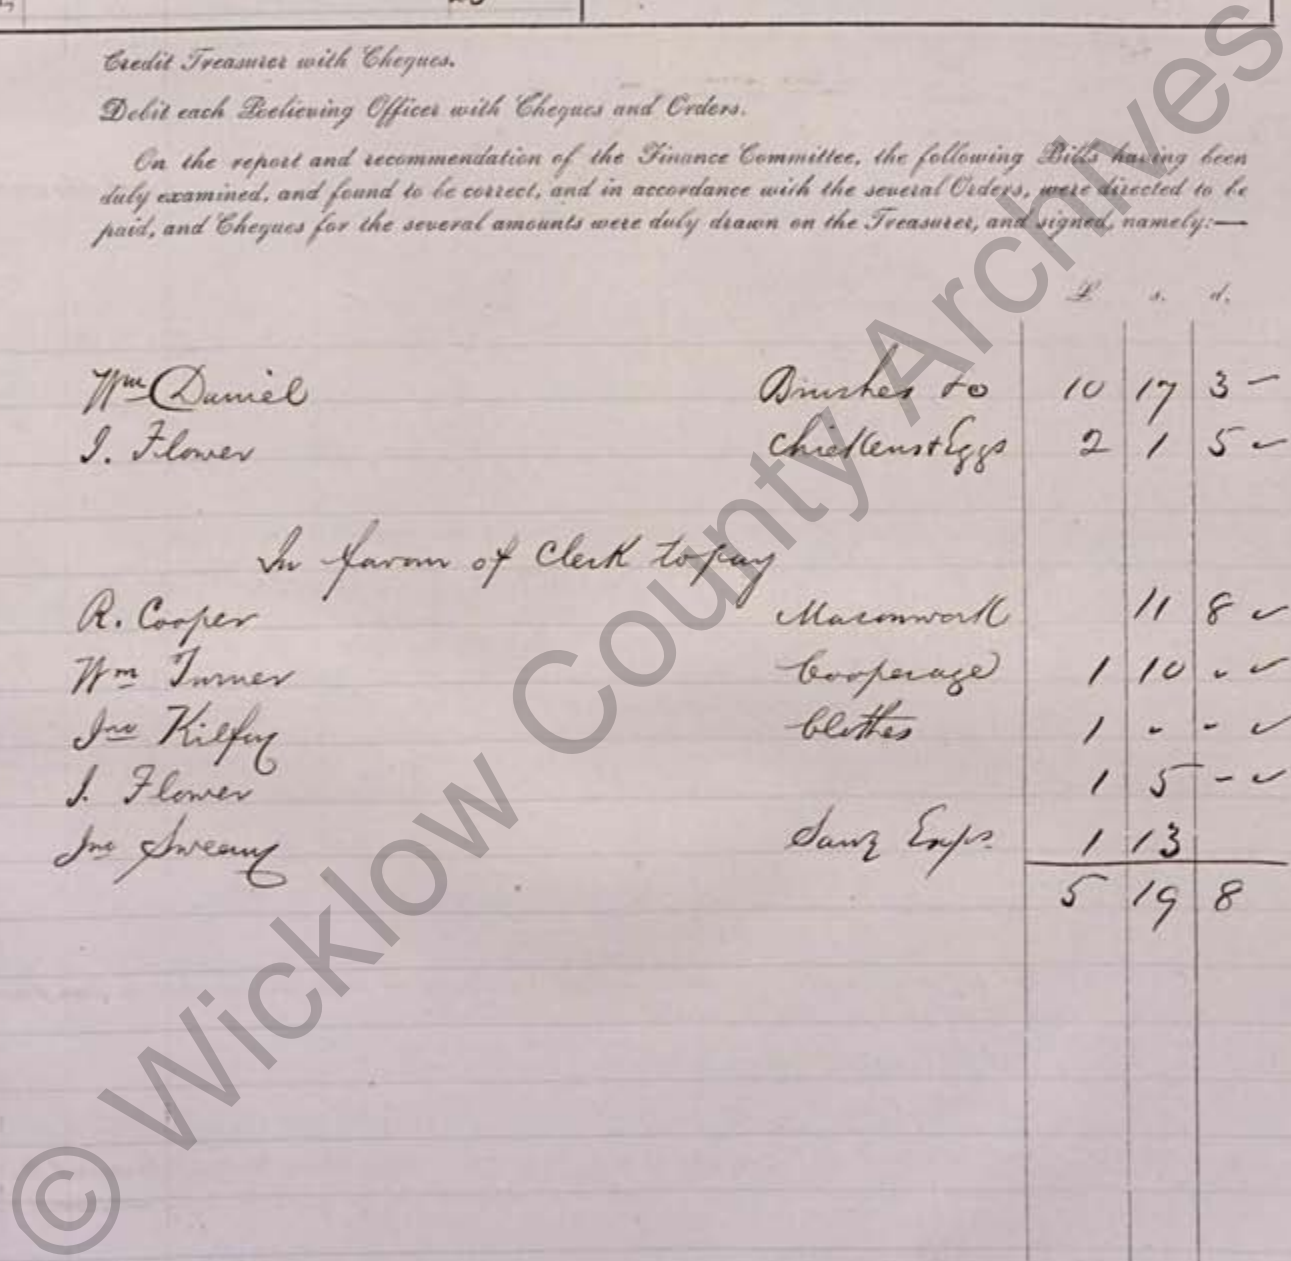 Credit Treasurer with Cheques.
Debit each Relieving Officer with Cheques and Orders.
On the report and recommendation of the Finance Committee, the following Bills having been
duly examined, and found to be correct, and in accordance with the several Orders, were directed to be
paid, and Cheques for the several amounts were duly drawn on the Treasurer, and signed, namely:—
£ s. d.
Wm Daniel Brushes &c 10 17 3 –
J. Flower Chickens & Eggs 2 1 5 ✓
In favour of Clerk to pay
R. Cooper Masonwork 11 8 ✓
Wm Turner Cooperage 1 10 - ✓
Jno Kilfoy Clothes 1 - - ✓
J. Flower 1 5 - ✓
Jno Sweeny Sany Exps. 1 13
5 19 8
© Wicklow County Archives